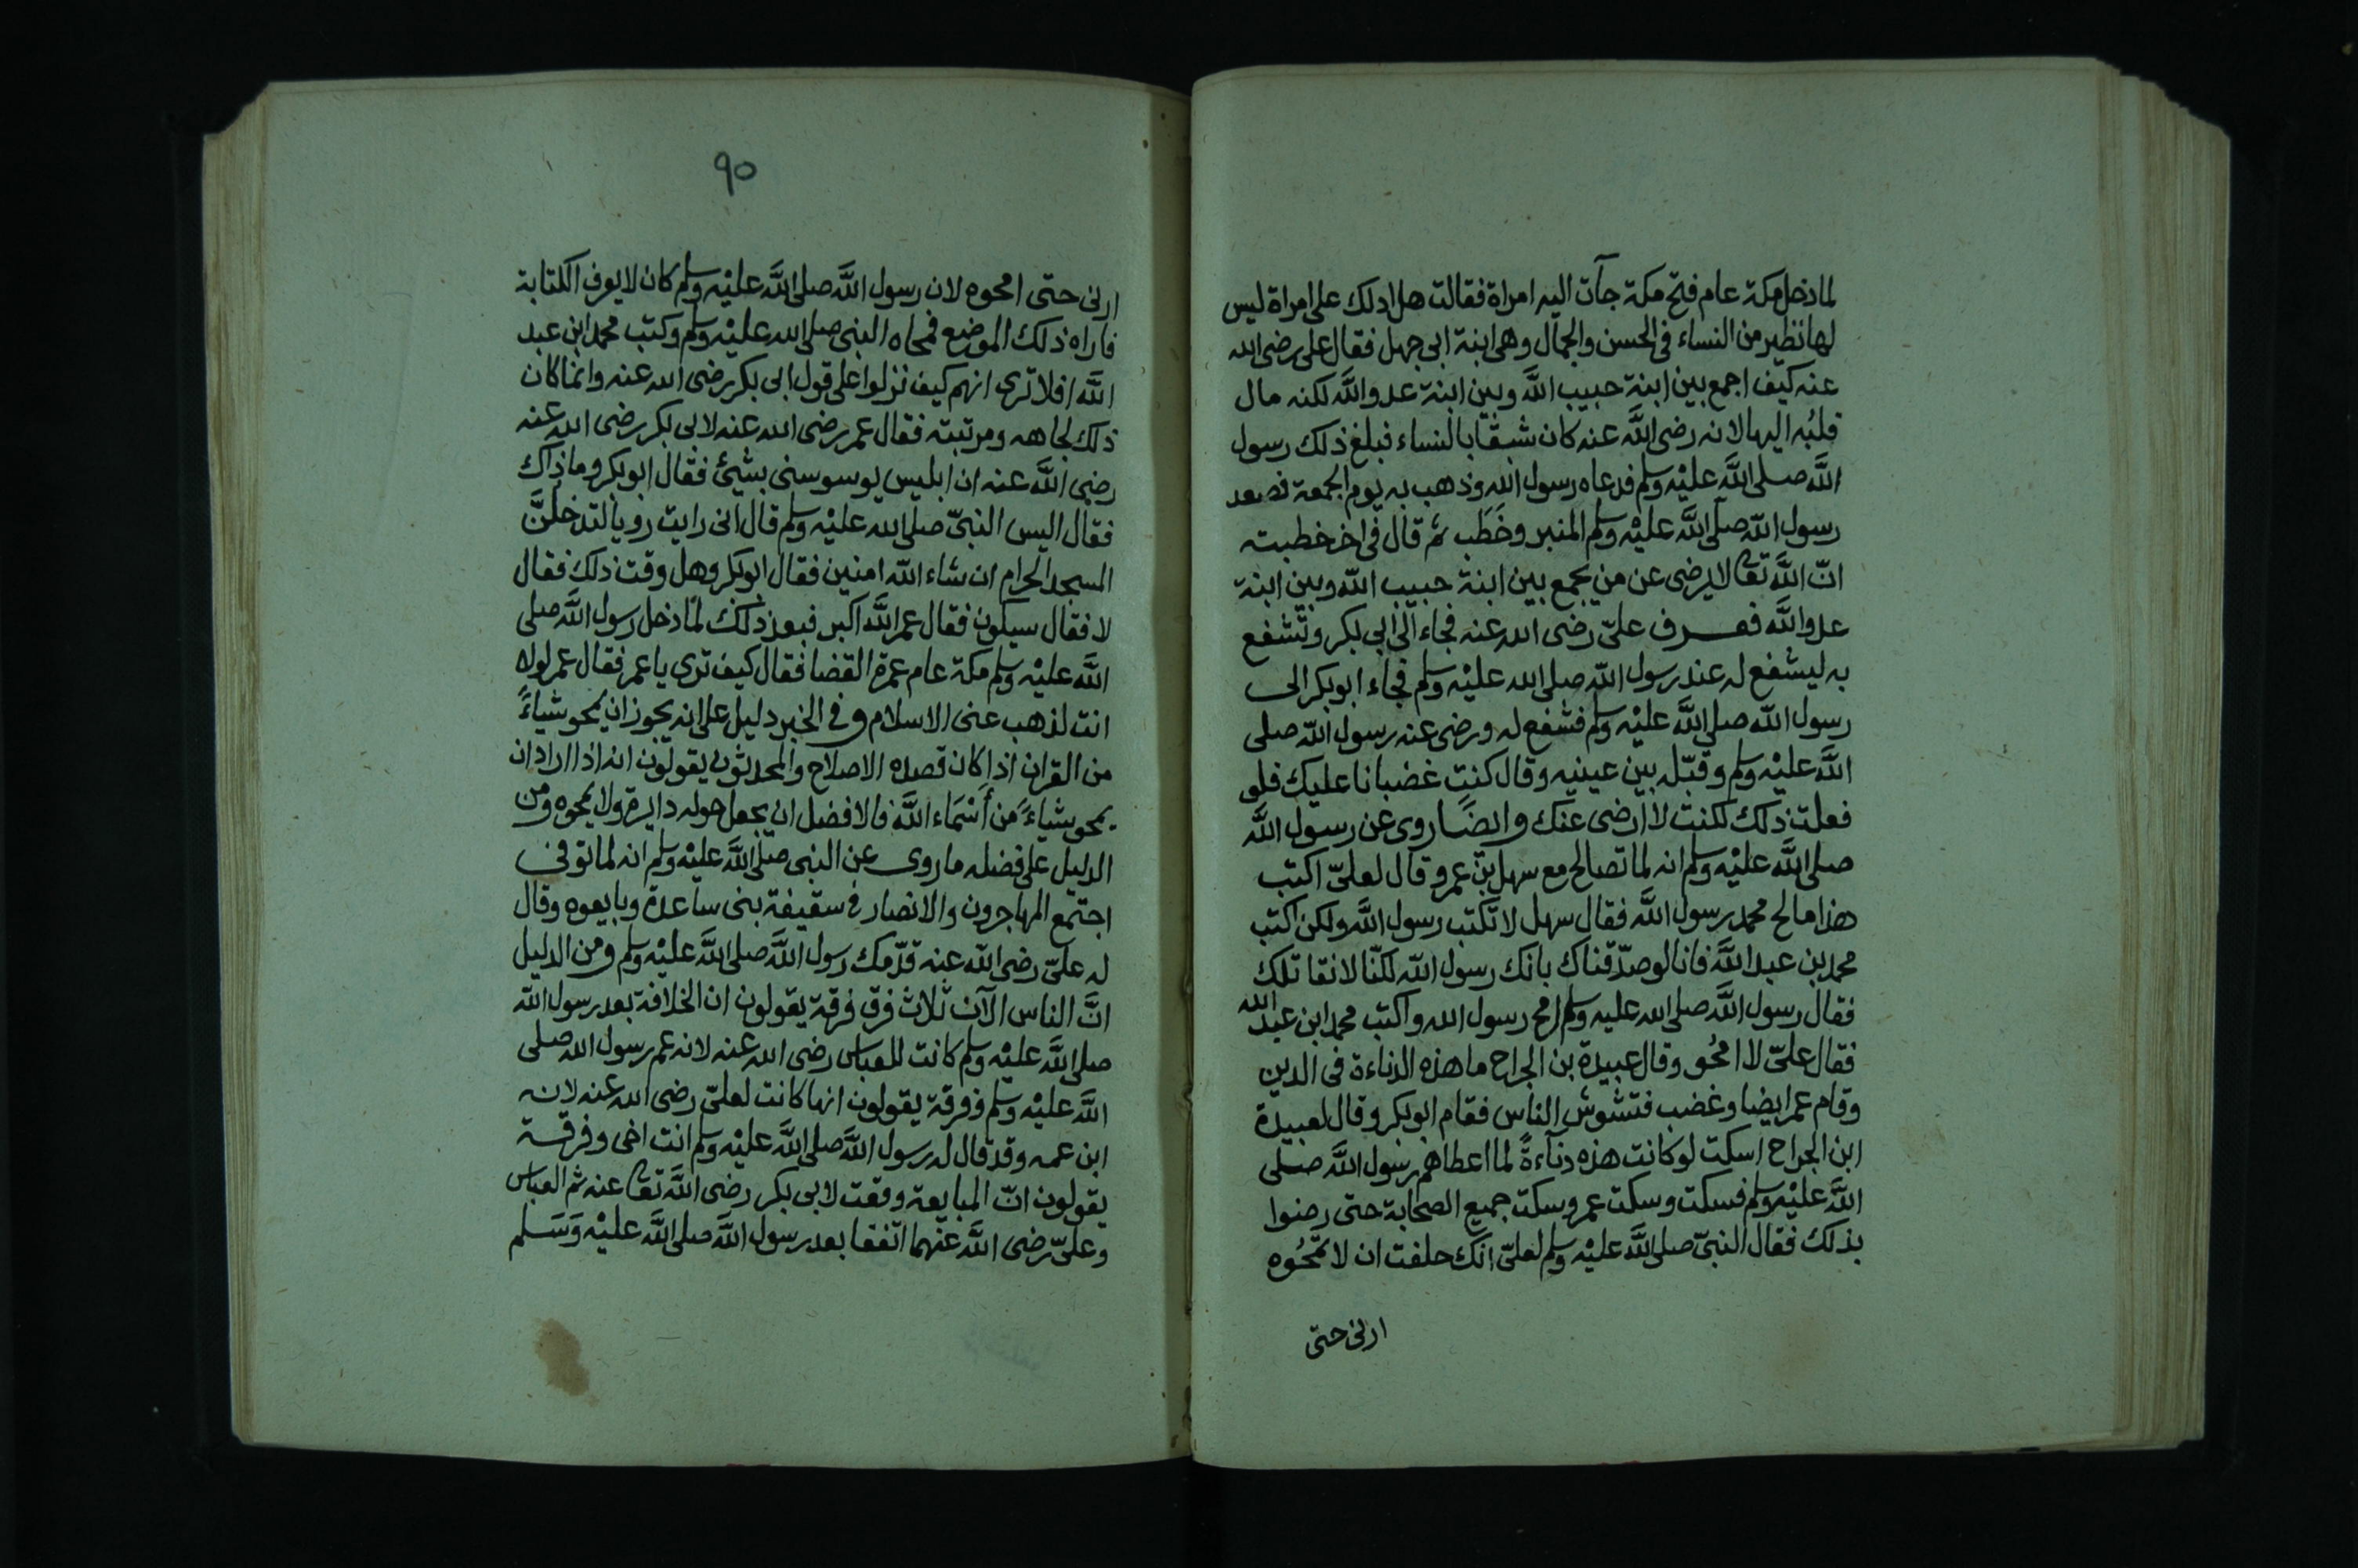 لما دخل مكة عام فتح مكة جآت اليه امراة فقالت هل ادلك على امراة ليس
لها نظير من النساء فى الحسن والجمال وهى ابنة ابى جهل فقال على رضى الله
عنه كيف اجمع بين ابنة حبيب الله وبين ابنة عدو الله لكنه مال
قلبُه اليها لانه رضى الله عنه كان شبقا بالنساء فبلغ ذلك رسول
الله صلى الله عليْه وسلم فدعاه رسول الله وذهب به يوم الجمعة فصعد
رسول الله صلى الله عليْه وسلم المنبر وخَطَب ثم قال فى اخر خطبته
انّ الله تعالى لا يرضى عن من يجمع بين ابنة حبيب الله وبين ابنة
عدو الله فعرف علىّ رضى الله عنه فجاء الى ابى بكر وتشفع
به ليشفع له عند رسول الله صلى الله عليْه وسلم فجاء ابو بكر الى
رسول الله صلى الله عليْه وسلم فشفع له ورضى عنه رسول الله صلى
الله عليْه وسلم وقبّله بين عينيه وقال كنتِ غضبانا عليك فلو
فعلت ذلك لكنت لا ارضى عنك وايضًا روى عن رسول الله
صلى الله عليْه وسلم انه لما تصالح مع سهل بن عمرو قال لعلىّ اكتب
هذا ما صالح محمد رسول الله فقال سهل لا تكتب رسول الله ولكن اكتب
محمد بن عبد الله فانا لو صدّقناك بانك رسول الله لكنّا لا نقاتلك
فقال رسول الله صلى الله عليه وسلم امح رسول الله واكتب محمد ابن عبد الله
فقال علىّ لا امحُو وقال عبيدة بن الجراح ما هذه الدناءة فى الدين
وقام عمر ايضا وغضب فتشوش الناس فقام ابو بكر وقال لعبيدة
ابن الجراح اسكت لو كانت هذه دنآءةً لما اعطاهم رسول الله صلى
الله عليْه وسلم فسكت وسكت عمر وسكت جميع الصحابة حتى رضوا
بذلك فقال النبىّ صلى الله عليْه وسلم لعلىّ انك حلفت ان لا تمحُوه
ارنى حتى
٩٠
ارنى حتى امحوه لان رسول الله صلى الله عليْه وسلم كان لا يعرف الكتابة
فاراه ذلك الموضع فمحاه النبى صلى الله عليْه وسلم وكتب محمد ابن عبد
الله افلا ترى انهم كيف نزلوا على قول ابى بكر رضى الله عنه وانما كان
ذلك لجاهه ومرتبته فقال عمر رضى الله عنه لابى بكر رضى الله عنه
رضى الله عنه ان ابليس يوسوسنى بشيئ فقال ابو بكر وما ذاك
فقال اليس النبىّ صلى الله عليْه وسلم قال انى رايت رويا لتدخلنَّ
المسجد الحرام ان شاء الله امنين فقال ابو بكر وهل وقت ذلك فقال
لا فقال سيكون فقال عمر الله اكبر فبعد ذلك لما دخل رسول الله صلى
الله عليْه وسلم مكة عام عمرة القضا فقال كيف ترى يا عمر فقال عمر لولا
انت لذهب عنى الاسلام وفى الخبر دليل على انه يجوز ان يمحو شياءً
من القران اذا كان قصده الاصلاح والمحدثون يقولون انه اذا اراد ان
يمحو شياءً من أسْمَاء الله فالافضل ان يجعل حوله دايرة ولا يمحوه ومن
الدليل على فضله ما روى عن النبى صلى الله عليْه وسلم انه لما توفى
اجتمع المهاجرون والانصار فى سقيفة بنى ساعدة وبايعوه وقال
له علىّ رضى الله عنه قدّمك رسول الله صلى الله عليْه وسلم ومن الدليل
انَّ الناس الآن ثلاث فرق فرقة يقولون ان الخلافة بعد رسول الله
صلى الله عليْه وسلم كانت للعباس رضى الله عنه لانه عم رسول الله صلى
الله عليْه وسلم وفرقة يقولون انها كانت لعلىّ رضى الله عنه لانه
ابن عمه وقد قال له رسول الله صلى الله عليْه وسلم انت اخى وفرقة
يقولون انّ المبايعة وقعت لابى بكر رضى الله تعالى عنه ثم العباس
وعلىّ رضى الله عنهما اتفقا بعد رسول الله صلى الله عليْه وَسَلم